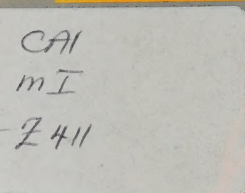 CAI
MI
-Z411